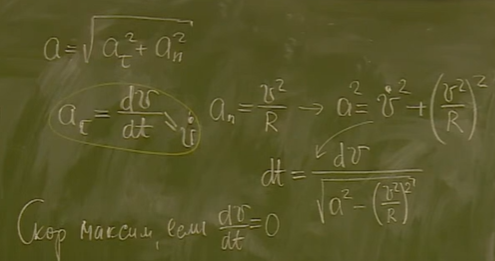 a = √(a_τ² + a_n²)
a_τ = dv/dt ↘ v̇ a_n = v²/R → a² = v̇² + (v²/R)²
dt = dv/√(a² - (v²/R)²)
Скор максим, если dv/dt = 0